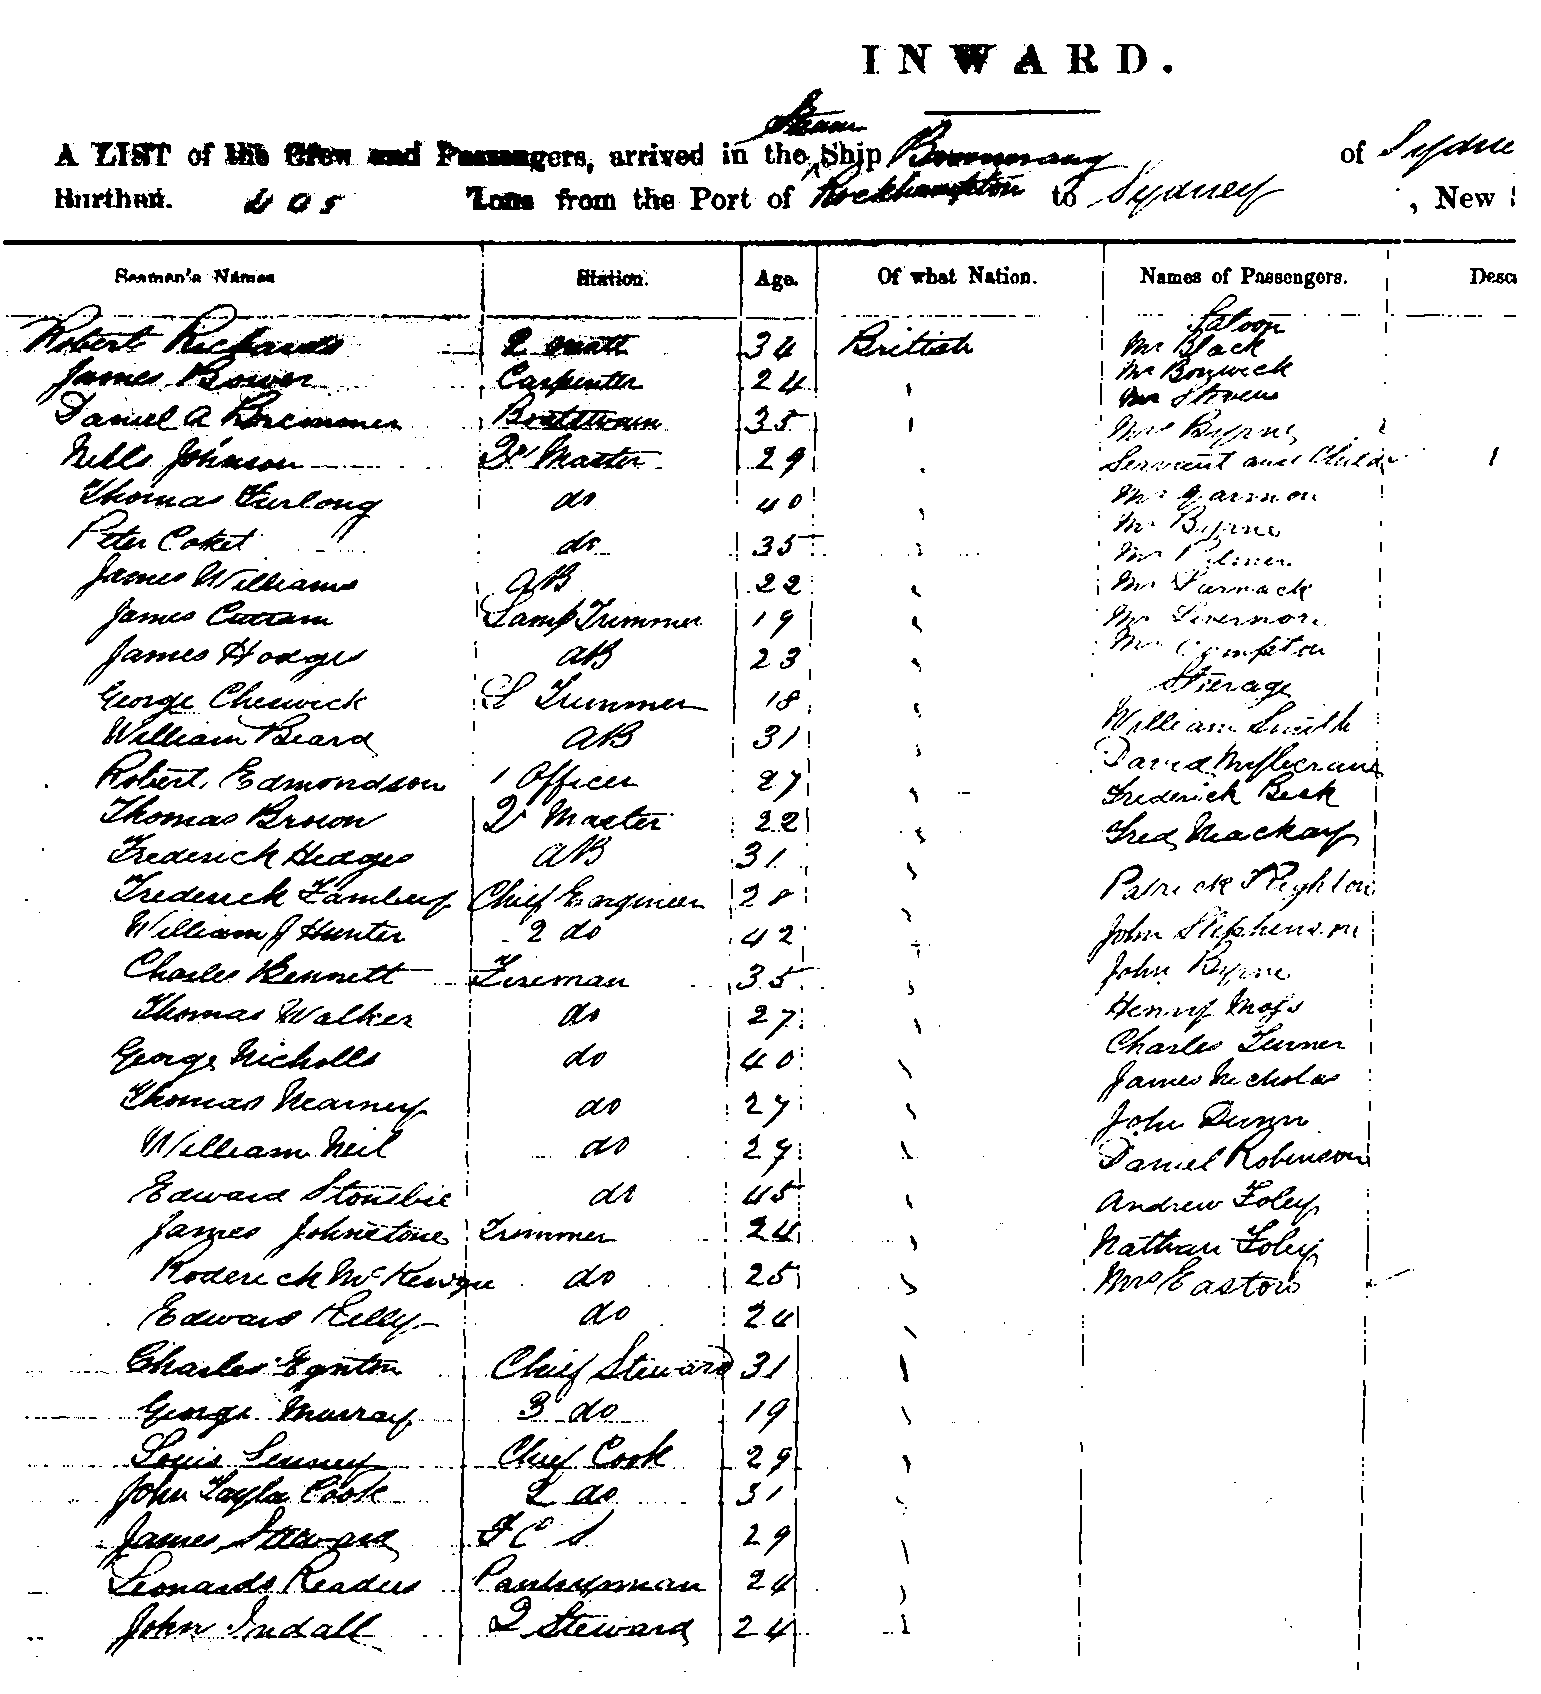 INWARD.
Steam
A LIST of the Crew and Passengers, arrived in the Ship Boomerang of Sydne
Burthen. 405 Tons from the Port of Rockhampton to Sydney , New
Seamen's Names Station. Age. Of what Nation. Names of Passengers. Desc
Saloon
Robert Richards 2 Mate 34 British Mr Black
James Bower Carpenter 24 Mr Borzwick
Daniel A Boatswain 35 Mr Stevens
Mrs Byrne
Nills Johnson Qr Master 29 Servant and Child 1
Thomas Furlong do 40 Mr Garmon
Mr Byrne
Peter Coket do 35 Mr
James Williams AB 22 Mr
James Cuttam Lamp Trimmer 19 Mr
James Hodges AB 23 Mr Compton
George Cheswick L Trimmer 18 Sterage
William Beard AB 31 William Smith
Robert Edmondson 1 Officer 27 David
Thomas Brown Qr Master 22 Frederick Beck
Frederick Hedges AB 31 Fred Mackay
Frederick Chief Engineer 28 Patrick
William J Hunter 2 do 42 John Stephenson
Charles Bennett Fireman 35 John Byrne
Thomas Walker do 27 Henry Moss
George Nicholls do 40 Charles Turner
Thomas Nearney do 27 James Nicholas
William Neil do 29 John Dunn
Daniel Robinson
Edward do 45 Andrew Foley
James Johnstone Trimmer 24 Nathan Foley
Roderick do 25 Mrs Easton
Edward Kelly do 24
Charles Egnton Chief Steward 31
George Murray 3 do 19
Louis Chief Cook 29
John Tayla Cook 2 do 31
James Steward F C S 29
Leonards Readers Pantryman 24
John Indall 2 Steward 24